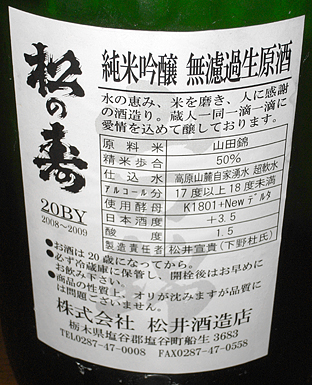 松の寿
20BY
2008～2009
純米吟醸 無濾過生原酒
水の恵み、米を磨き、人に感謝
の酒造り。蔵人一同一滴一滴に
愛情を込めて醸しております。
原料米 山田錦
精米歩合 50%
仕込水 高原山麓自家湧水 超軟水
アルコール分 17度以上18度未満
使用酵母 K1801+New デルタ
日本酒度 +3.5
酸度 1.5
製造責任者 松井宣貴(下野杜氏)
●お酒は20歳になってから。
●必ず冷蔵庫に保管し、開栓後はお早めに
お飲み下さい。
●商品の性質上、オリが沈みますが品質に
は問題ございません。
株式会社 松井酒造店
栃木県塩谷郡塩谷町船生3683
TEL0287-47-0008 FAX0287-47-0558